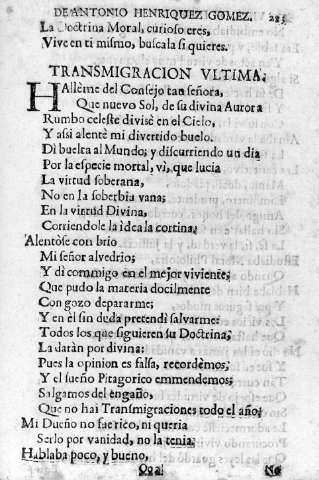 DE ANTONIO HENRIQUEZ GOMEZ. 285
La Doctrina Moral, curioso eres,
Vive en ti mismo, buscala si quieres.
TRANSMIGRACION VLTIMA.
HAllème del Consejo tan señora,
Que nuevo Sol, de su divina Aurora
Rumbo celeste divisè en el Cielo,
Y assi alentè mi divertido buelo.
Di buelta al Mundo; y discurriendo un dia
Por la especie mortal, vì, que lucia
La virtud soberana,
No en la soberbia vana;
En la virtud Divina,
Corriendole la idea la cortina;
Alentòse con brio
Mi señor alvedrio;
Y dì commigo en el mejor viviente;
Que pudo la materia docilmente
Con gozo depararme;
Y en èl sin duda pretendì salvarme:
Todos los que siguieren su Doctrina;
La daràn por divina:
Pues la opinion es falsa, recordèmos;
Y el sueño Pitagorico emmendemos;
Salgamos del engaño,
Que no hai Transmigraciones todo el año;
Mi Dueño no fue rico, ni queria
Serlo por vanidad, no la tenia;
Hablaba poco, y bueno,
Qq2 No